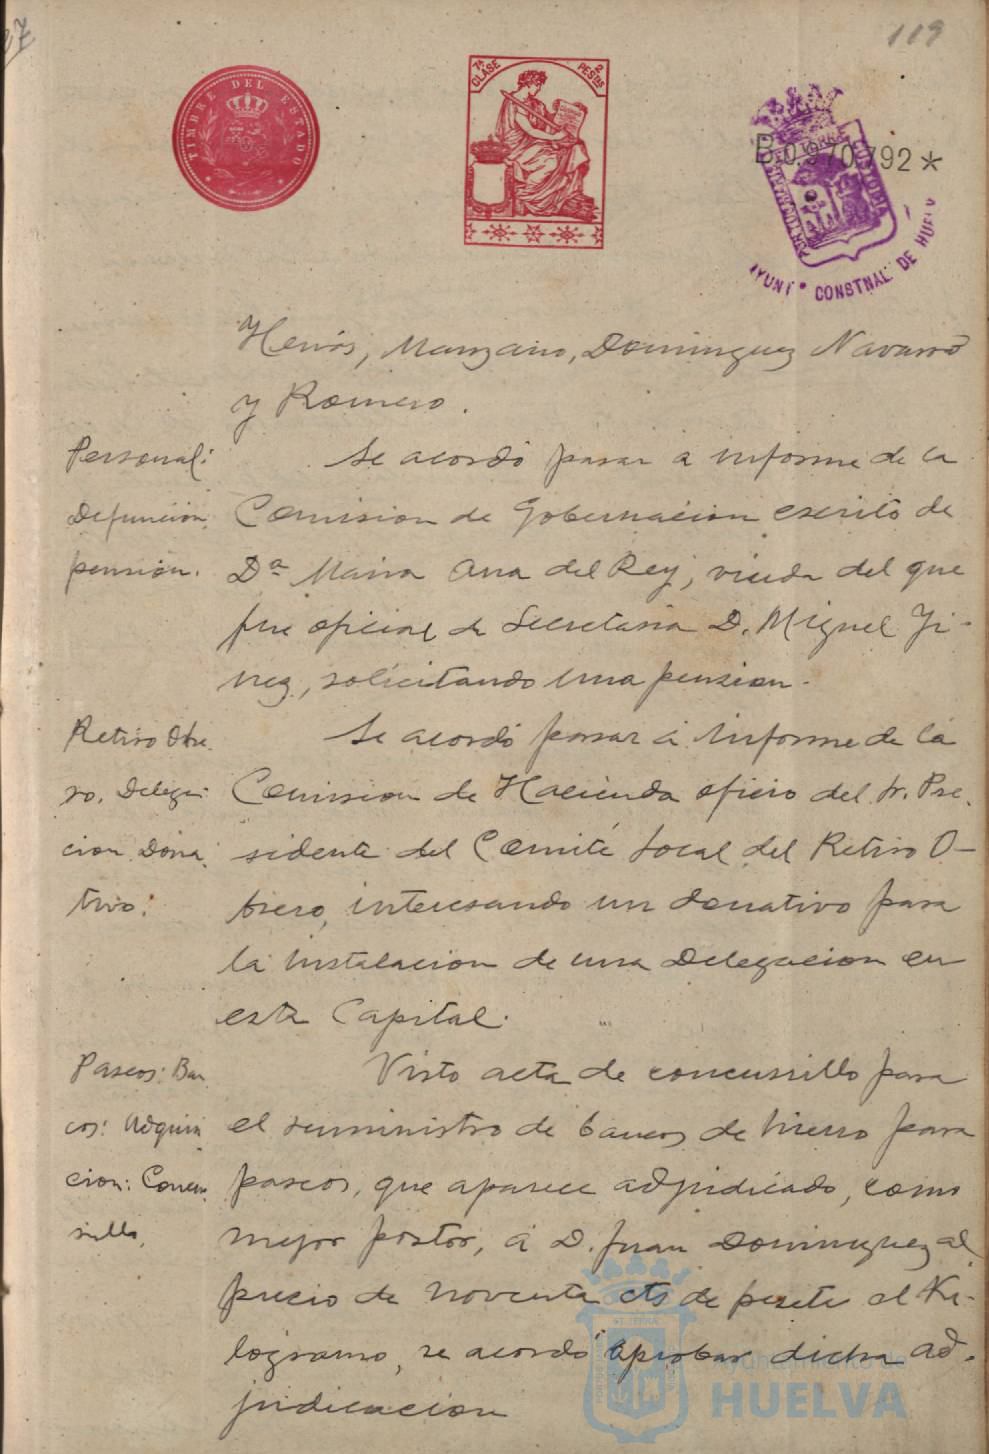 27
119
TIMBRE DEL ESTADO
7ª CLASE
2 PESTAS
B.0.970.792*
PORTUS MARIS ET TERRAE CUSTODIA
AYUNTº CONSTNAL DE HUELVA
Manzano, Dominguez Navarro
y Romero.
Personal:
Defuncion,
pension.
Se acordó pasar a informe de la
Comision de Gobernacion escrito de
Dª Maria Ana del Rey, viuda del que
fue oficial de Secretaria D. Miguel Ji-
nez, solicitando una pension.
Retiro Obre
ro. Delega-
cion. Dona
tivo.
Se acordó pasar á informe de la
Comision de Hacienda oficio del Sr. Pre-
sidente del Comité Local del Retiro O-
brero, interesando un donativo para
la instalacion de una Delegacion en
esta Capital.
Paseos: Ban
cos: Adquisi
cion: Concur
sillo.
Visto acta de concursillo para
el suministro de bancos de hierro para
paseos, que aparece adjudicado, como
mejor postor, á D. Juan Dominguez al
precio de noventa cts de peseta el Ki-
logramo, se acordó aprobar dicha ad-
judicacion
Ayuntamiento de
HUELVA